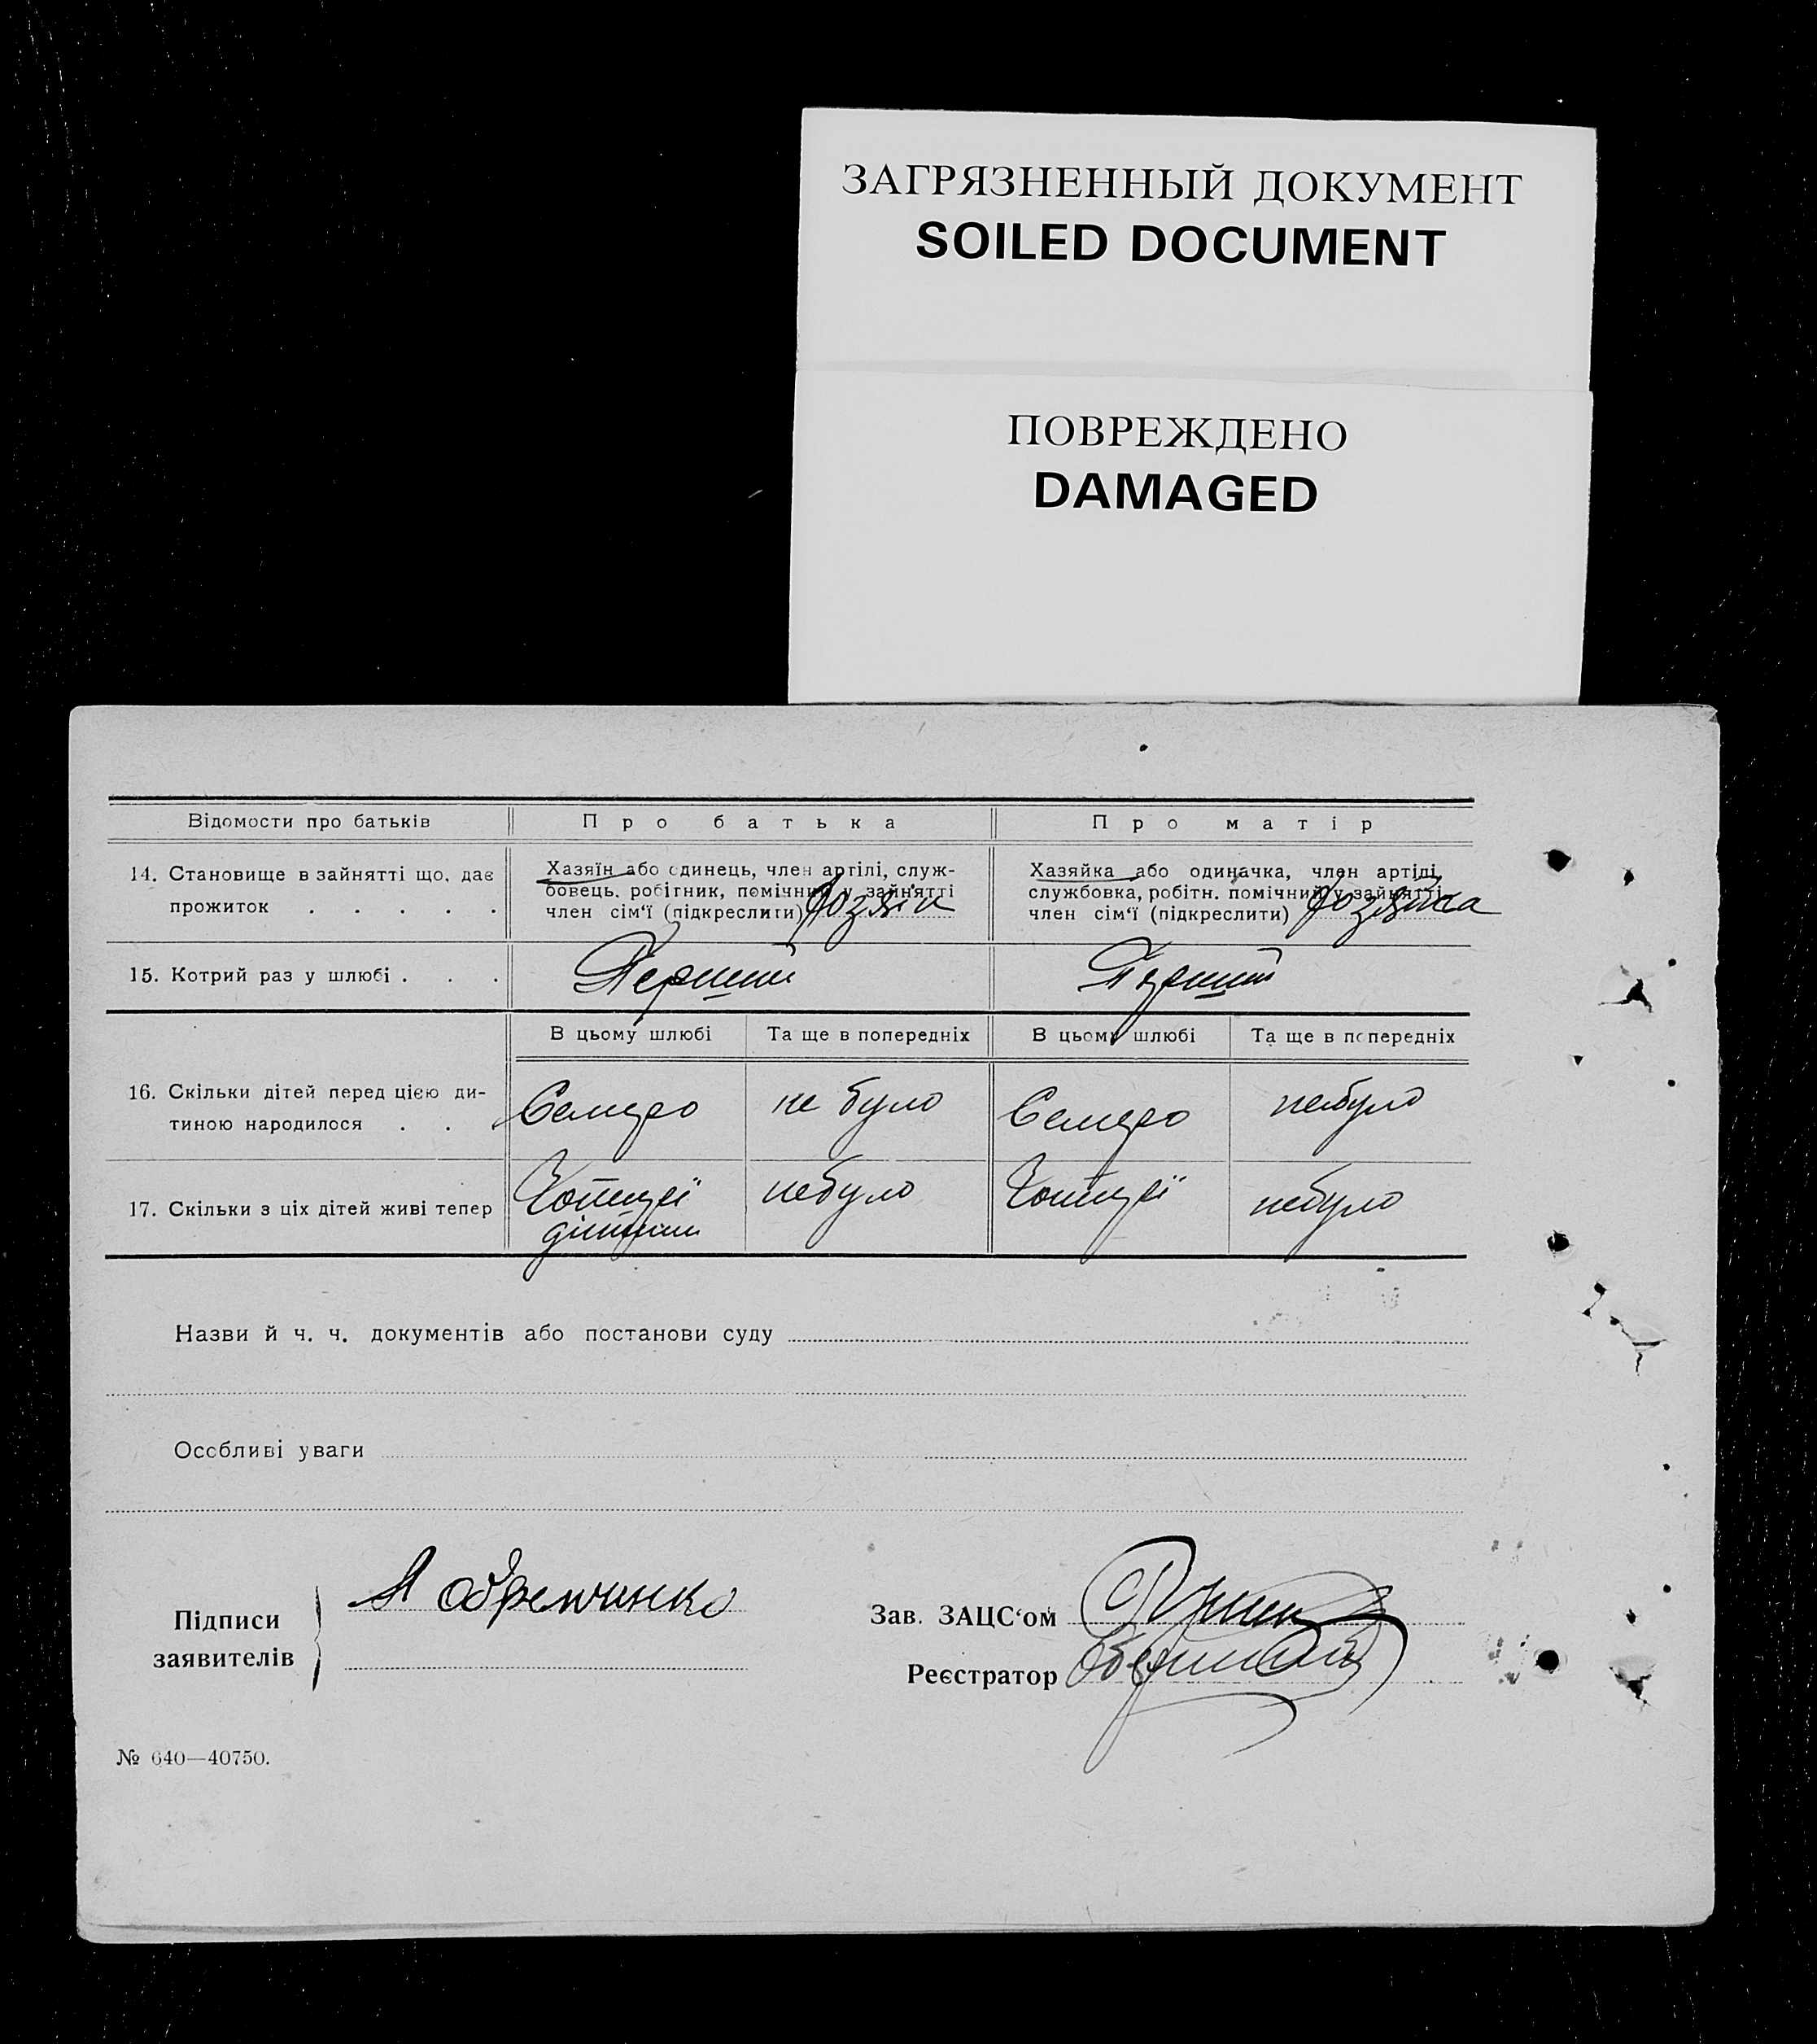 ЗАГРЯЗНЕННЫЙ ДОКУМЕНТ
SOILED DOCUMENT
ПОВРЕЖДЕНО
DAMAGED
Відомости про батьків
Про батька
Про матір
14. Становище в зайнятті що, дає
прожиток . . . . .
Хазяїн або одинець, член артілі, служ-
бовець. робітник, помічний у зайнятті
член сім'ї (підкреслити) Хозяін
Хазяйка або одиначка, член артілі,
службовка, робітн. помічний у зайнятті
член сім'ї (підкреслити) Хозяйка
15. Котрий раз у шлюбі . . .
Перший
Перший
В цьому шлюбі
Та ще в попередніх
В цьому шлюбі
Та ще в попередніх
16. Скільки дітей перед цією ди-
тиною народилося . . .
Семеро
не було
Семеро
небуло
17. Скільки з ціх дітей живі тепер
небуло
небуло
Назви й ч. ч. документів або постанови суду
Особливі уваги
Підписи
заявителів
Зав. ЗАЦС‘ом
Реєстратор
№ 640—40750.